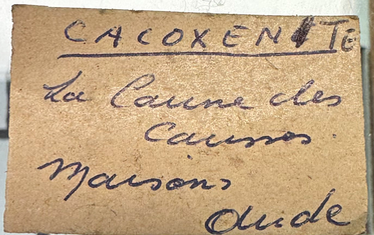 CACOXENITE
La Caune des
Causses.
Maisons
Aude